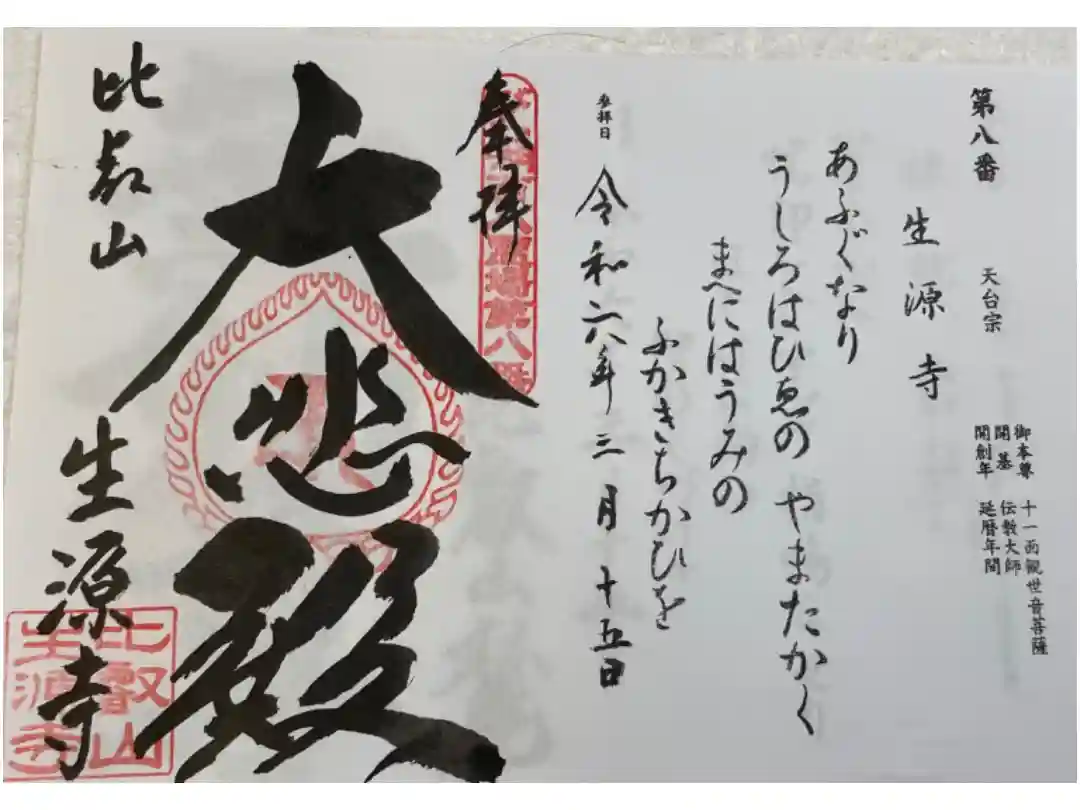 第八番 天台宗
御本尊 十一面観世音菩薩
開基 伝教大師
開創年 延暦年間
生源寺
あふぐなり
うしろはひゑの やまたかく
まへにはうみの
ふかきちかひを
参拝日 令和六年三月十五日
奉拝
八霊場第八番
大悲殿
比叡山 生源寺
比叡山
生源寺